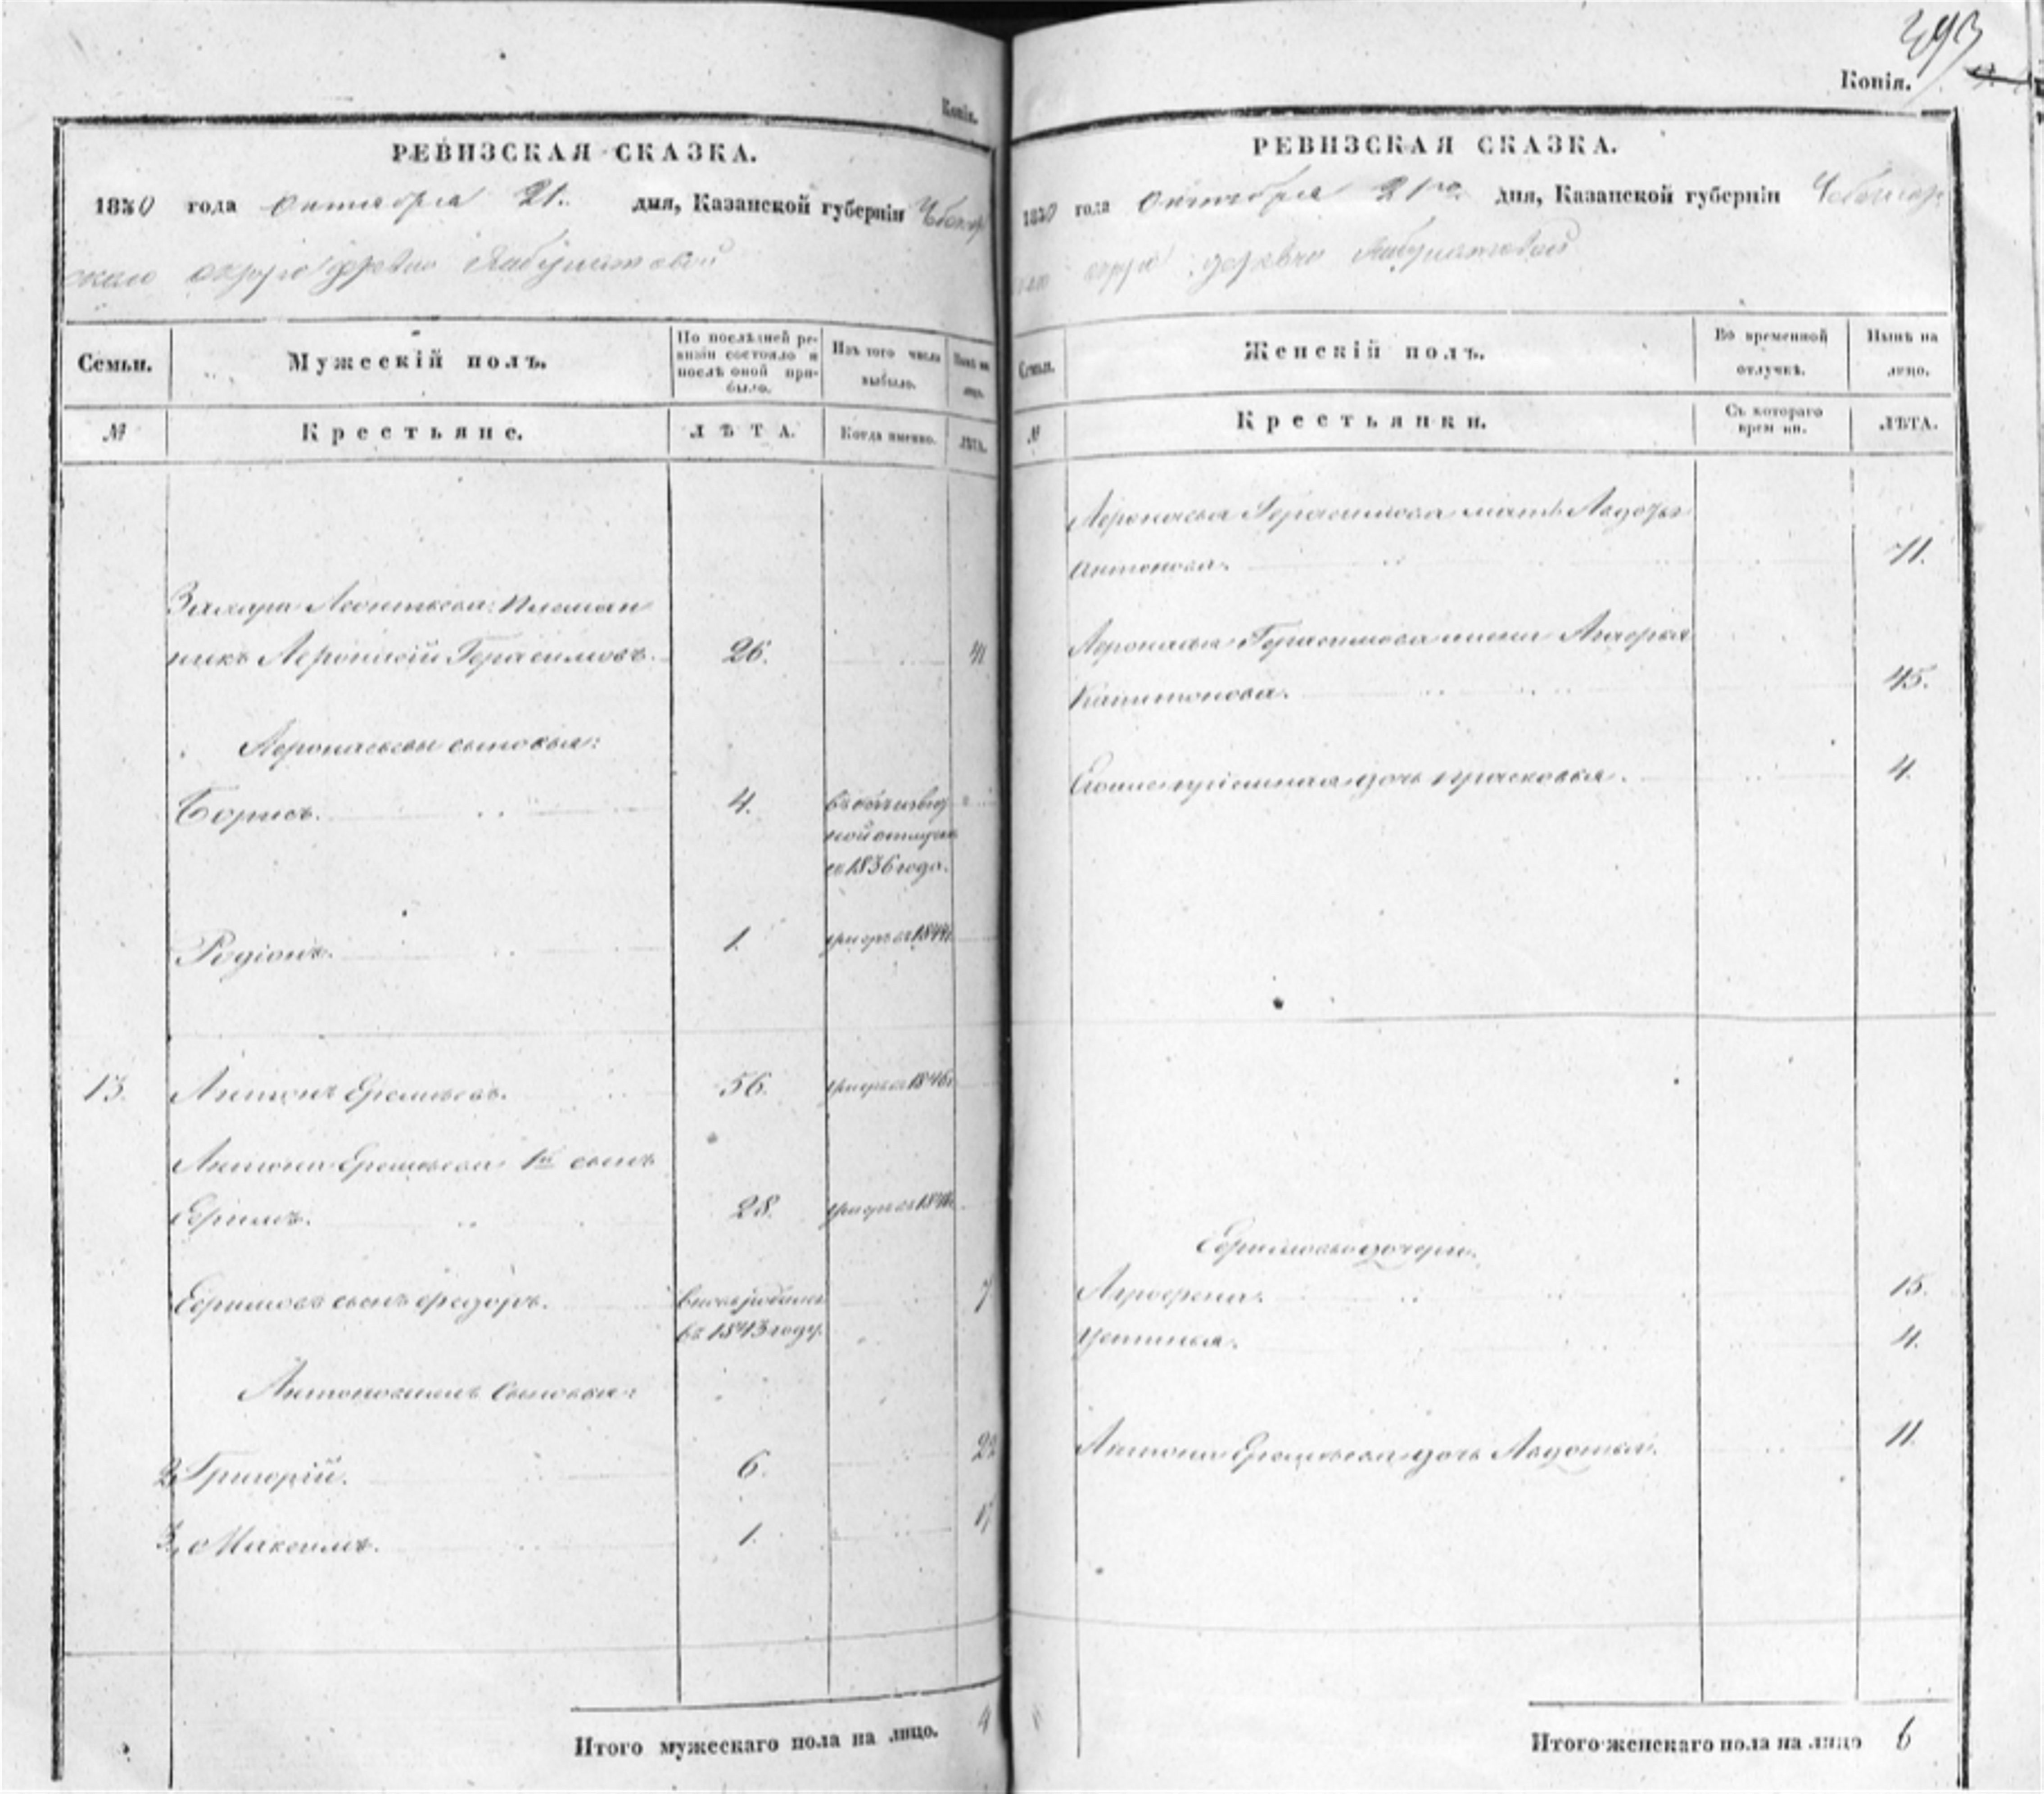 Копія.
РЕВИЗСКАЯ СКАЗКА.
1850 года Октября 21. дня, Казанской губерніи Чебокар
скаго округа деревни
Семьи.
Мужескій полъ.
По послѣдней ре-
визіи состояло и
послѣ оной при-
было.
Изъ того числа
выбыло.
Нынѣ на
лицо.
№
Крестьяне.
ЛѢТА.
Когда именно.
ЛѢТА.
Захара Леонтьева племян
никъ Герасимовъ. 26. 41
сыновья:
Борисъ. 4.
ной отлучке
съ 1836 года.
Родіонъ. 1.
13. Антонъ Еремѣевъ. 56.
Антона Еремѣева 1й сынъ
Ефимъ. 28.
Ефимовъ сынъ Федоръ. 7
въ 1843 году.
Антоновы сыновья:
2, Григорій. 6. 22
3, Максимъ. 1. 17
Итого мужескаго пола на лицо. 4
393
Копія.
РЕВИЗСКАЯ СКАЗКА.
1850 года Октября 21го дня, Казанской губерніи Чебокар
скаго округа деревни
Семьи.
Женскій полъ.
Во временной
отлучкѣ.
Нынѣ на
лицо.
№
Крестьянки.
Съ котораго
времени.
ЛѢТА.
Герасимова мать Авдотья
Антонова. 71.
Герасимова жена
45.
дочь Прасковья. 4.
Ефимовы дочери.
Агрофена. 15.
Устинья. 4.
Антона Еремѣева дочь Авдотья. 11.
Итого женскаго пола на лицо 6